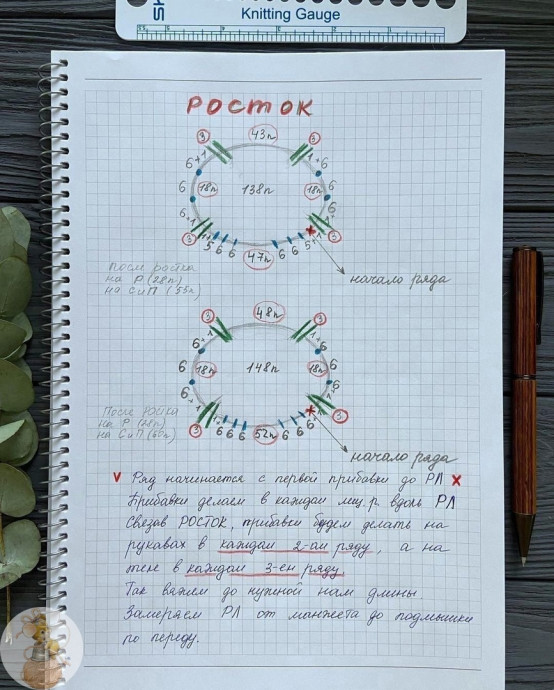 SH
Knitting Gauge
РОСТОК
3 43п 3
6+1 1+6
6 18п 138п 18п 6
6+1 6
3 1+5 6 6 47п 6 6 5+1 3
после ростка
на Р (28п)
на СиП (53п)
начало ряда
3 48п 3
6+1 1+6
6 18п 148п 18п 6
6+1 +6
3 1+6 6 6 52п 6 6 6+1 3
После ростка
на Р (28п)
на СиП
начало ряда
V Ряд начинается с первой прибавки до РЛ X
Прибавки делаем в каждом лиц.р. вдоль РЛ
Связав РОСТОК, прибавки будем делать на
рукавах в каждом 2-ом ряду, а на
теле в каждом 3-ем ряду.
Так вяжем до нужной нам длины.
Замеряем РЛ от манжета до подмышки
по переду.